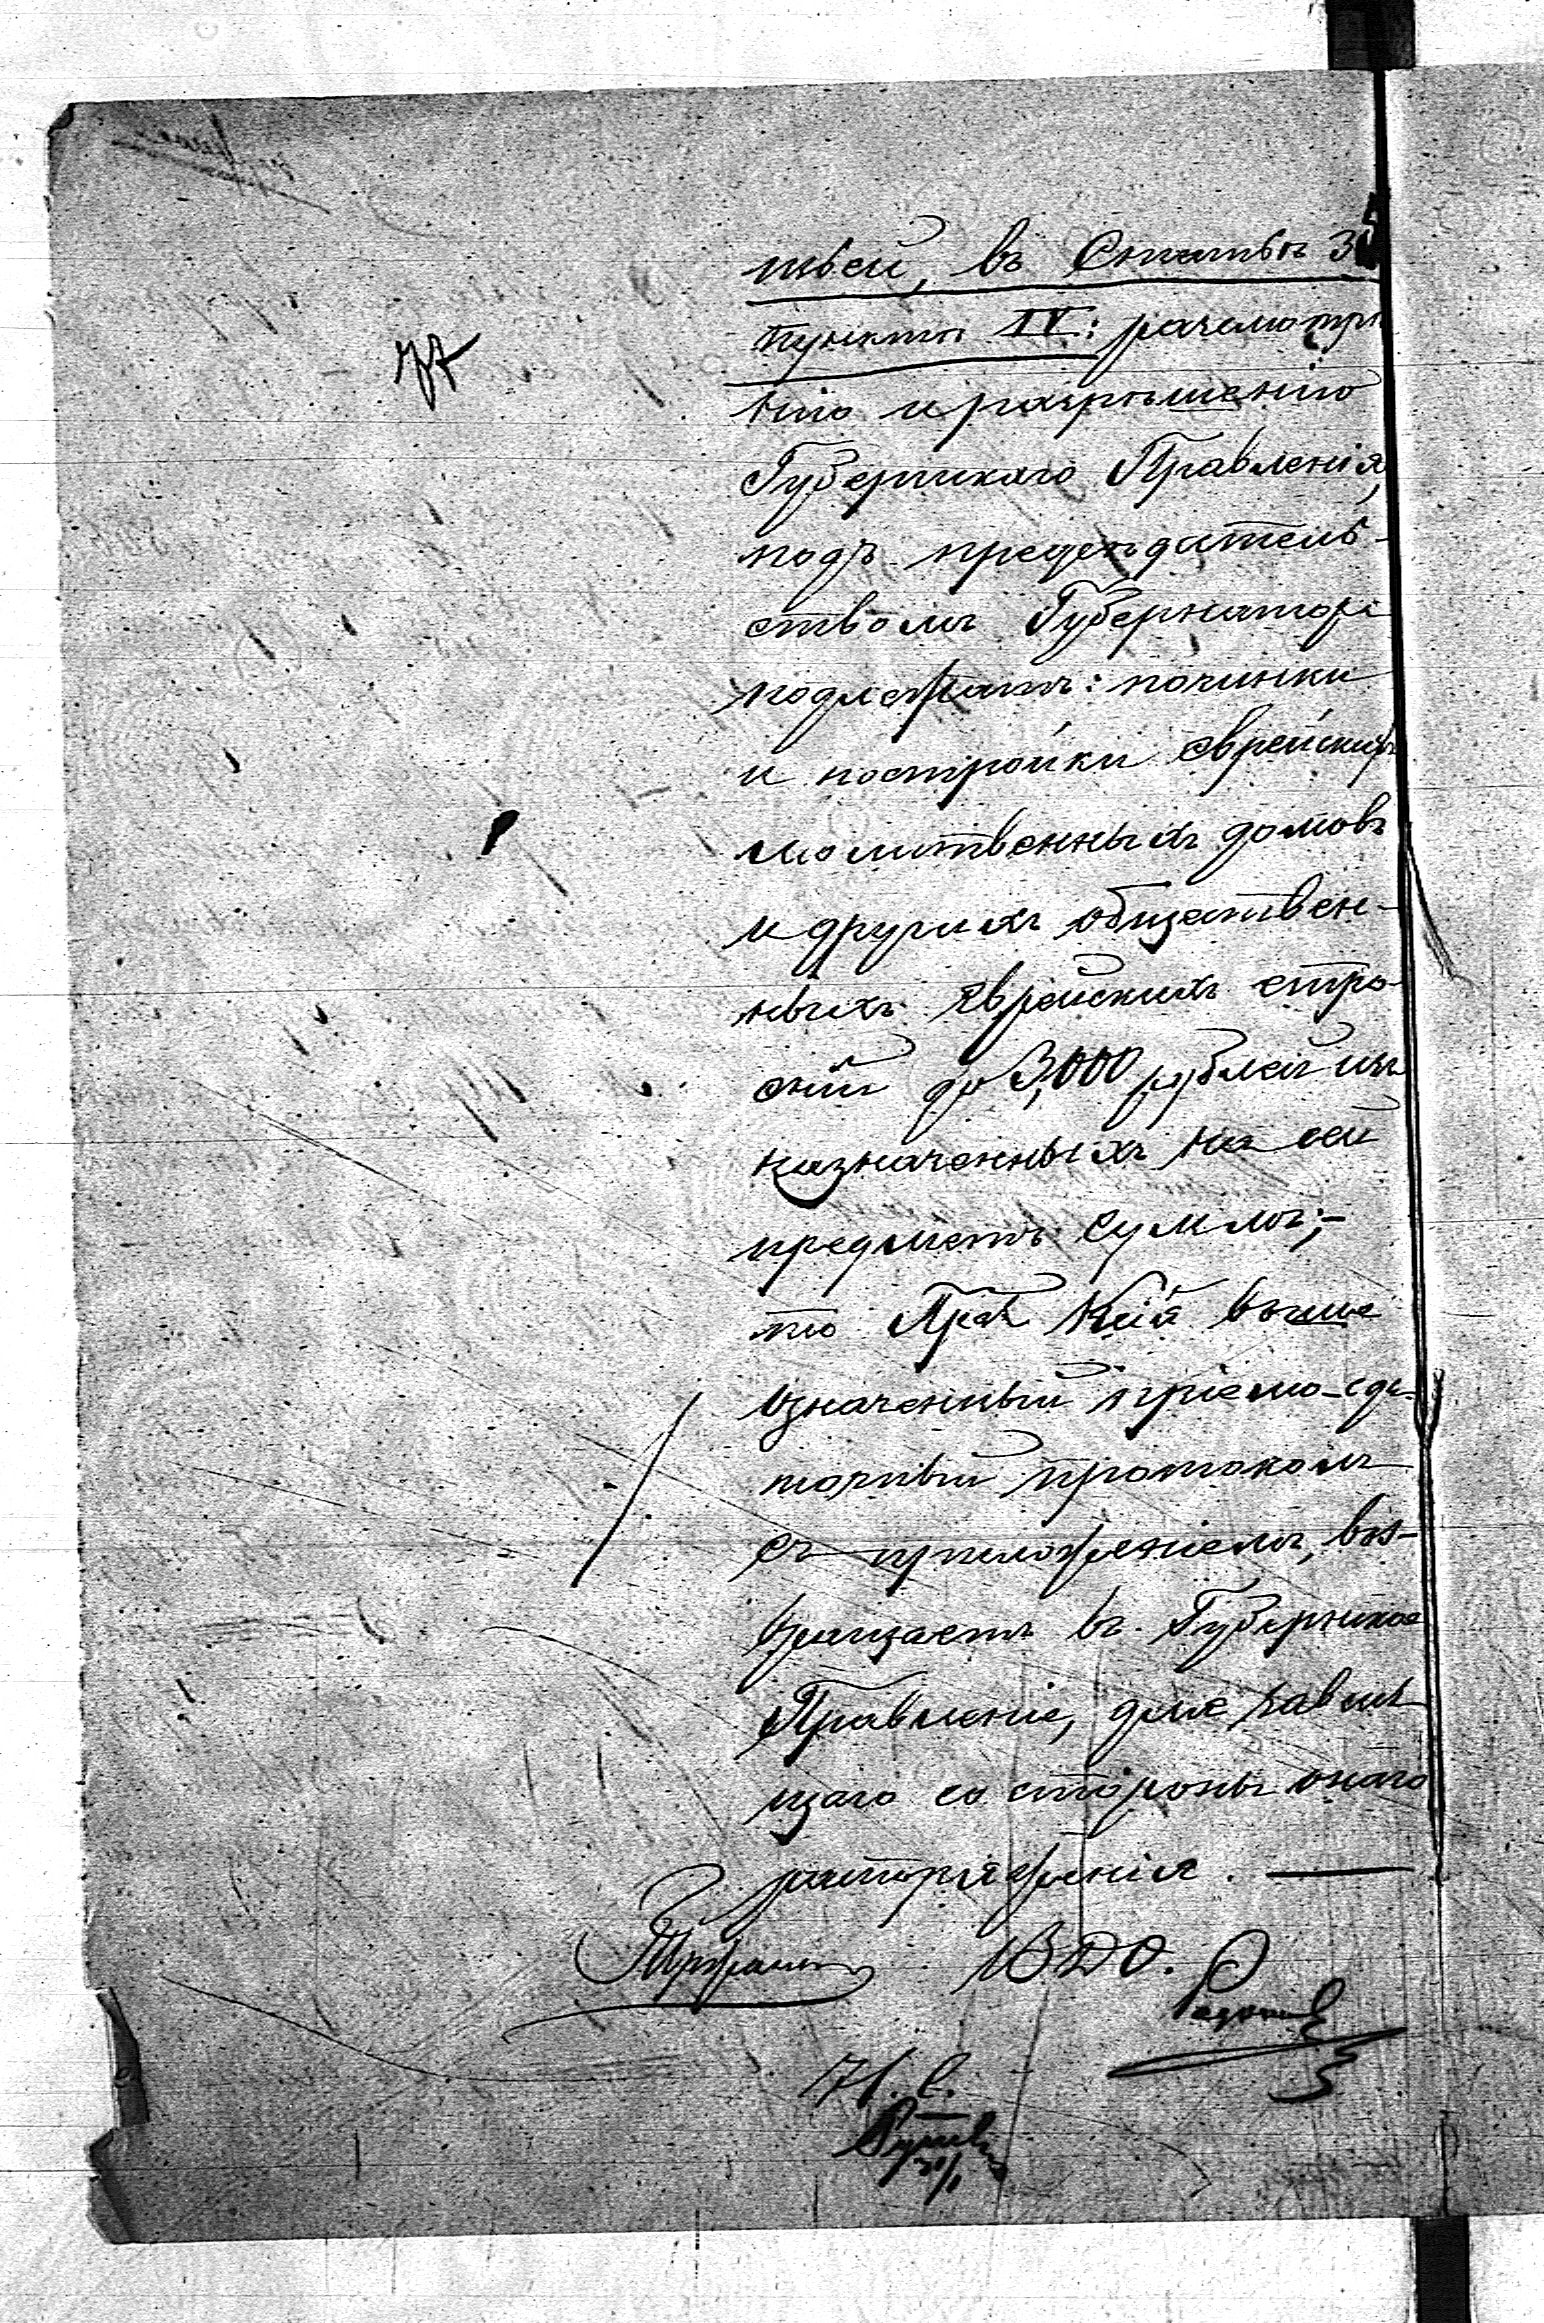 тьей, въ Статьѣ 3
пункта IV: разсмотрѣ
нію и разрѣшенію
Губернскаго Правленія,
подъ предсѣдатель-
ствомъ Губернатора
подлежатъ: починки
и постройки еврейскихъ
молитвенныхъ домовъ
и другихъ обществен-
ныхъ еврейскихъ стро-
еній до 3,000 рублей изъ
назначенныхъ на сей
предметъ суммъ;-
то выше
означенный пріемо-сда-
точный протоколъ
съ приложеніемъ, воз-
вращаетъ въ Губернское
Правленіе, для завися
щаго со стороны онаго
распоряженія.